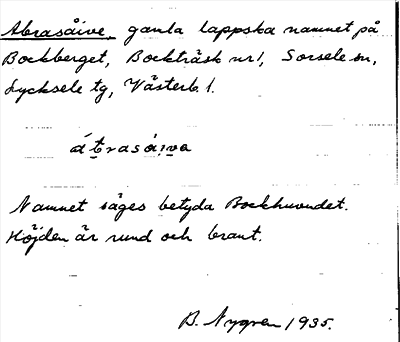 Abrasåive, gamla lappska namnet på
Bockberget, Bockträsk nr 1, Sorsele sn,
Lycksele tg, Västerb. l.
Namnet säges betyda Bockhuvudet.
Höjden är rund och brant.
B. Nygren 1935.